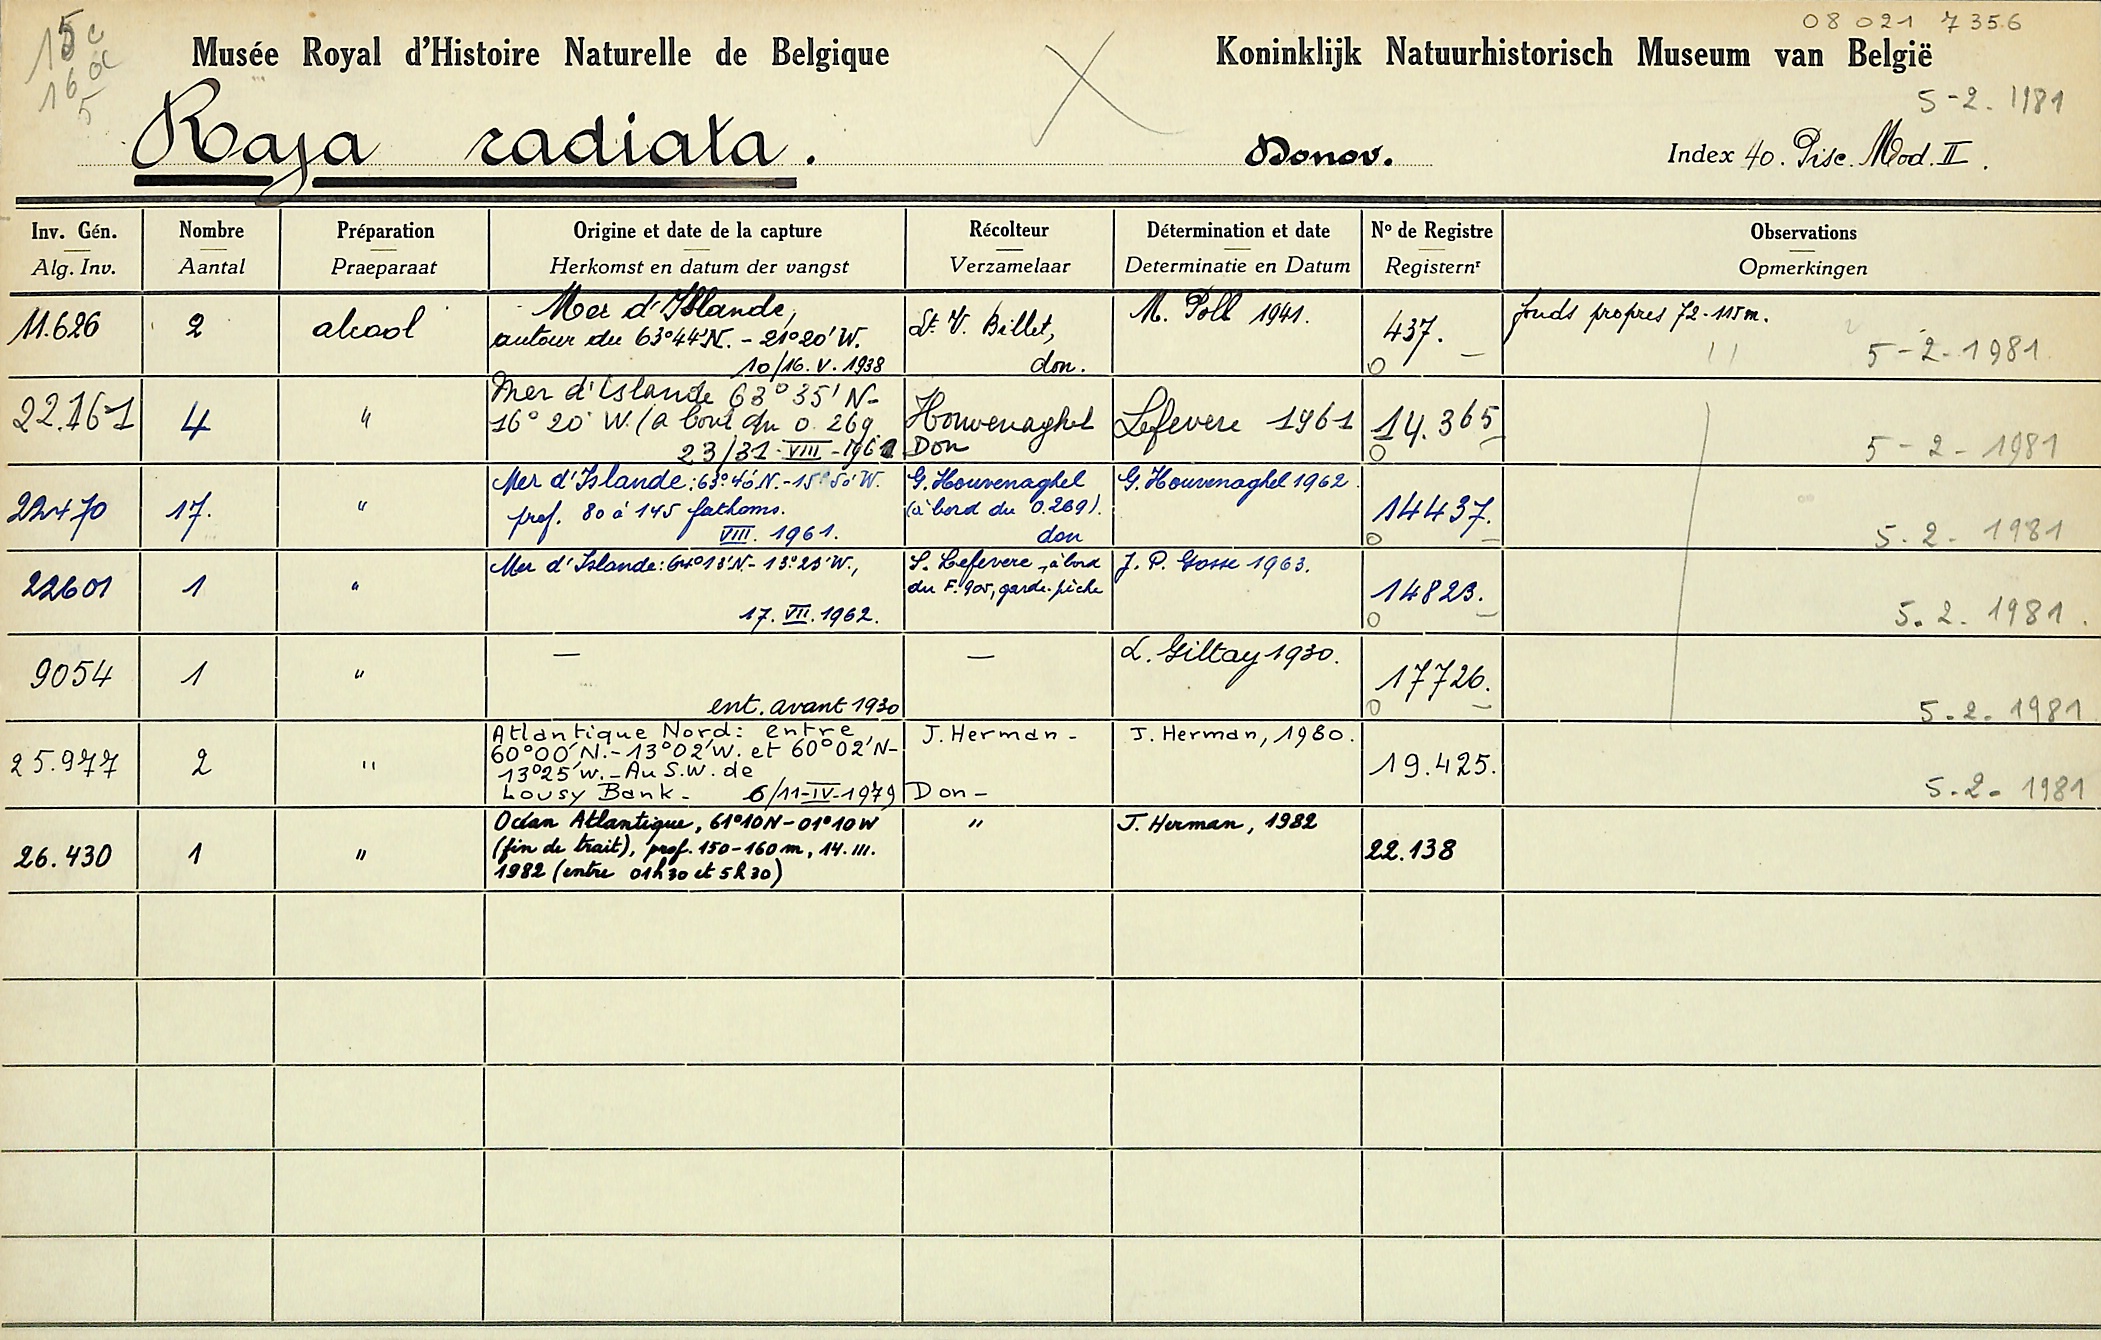 08 021 7356
15 c
16
5
Musée Royal d'Histoire Naturelle de Belgique
Koninklijk Natuurhistorisch Museum van België
5-2. 1981
Raja radiata.
Donov.
Index 40. Pisc. Mod. II.
Inv. Gén. Nombre Préparation Origine et date de la capture Récolteur Détermination et date No de Registre Observations
Alg. Inv. Aantal Praeparaat Herkomst en datum der vangst Verzamelaar Determinatie en Datum Registernr Opmerkingen
11.626 2 alcool
Mer d'Islande,
autour du 63°44'N. - 21°20'W.
10/16. V. 1938
Lt. V. Billet,
don.
M. Poll 1941.
437.
fonds propres 72-115m.
5-2-1981
22.161 4 "
Mer d'Islande 63°35'N-
16°20' W. (a bord du O. 269
23/31-VIII-1961
Houvenaghel
Don
Lefevere 1961
14.365
5-2-1981
22470 17. "
Mer d'Islande: 63°40'N.-15°50'W.
prof. 80 à 145 fathoms.
VIII. 1961.
G. Houvenaghel
(à bord du O.269).
don
G. Houvenaghel 1962.
14437.
5-2-1981
22601 1 "
Mer d'Islande: 64°13'N- 13°23'W.,
17. VII. 1962.
S. Lefevere, à bord
du F. 905, garde-pêche
J. P. Gosse 1963.
14823.
5.2. 1981.
9054 1 "
—
ent. avant 1930
—
L. Giltay 1930.
17726.
5-2-1981
25.977 2 "
Atlantique Nord: entre
60°00'N.-13°02'W. et 60°02'N-
13°25'W.-Au S.W. de
Lousy Bank- 6/11-IV-1979
J. Herman-
Don-
J. Herman, 1980.
19.425.
5-2-1981
26.430 1 "
Océan Atlantique, 61°10N-01°10W
(fin de trait), prof. 150-160m, 14.III.
1982 (entre 01h30 et 5h30)
"
J. Herman, 1982
22.138